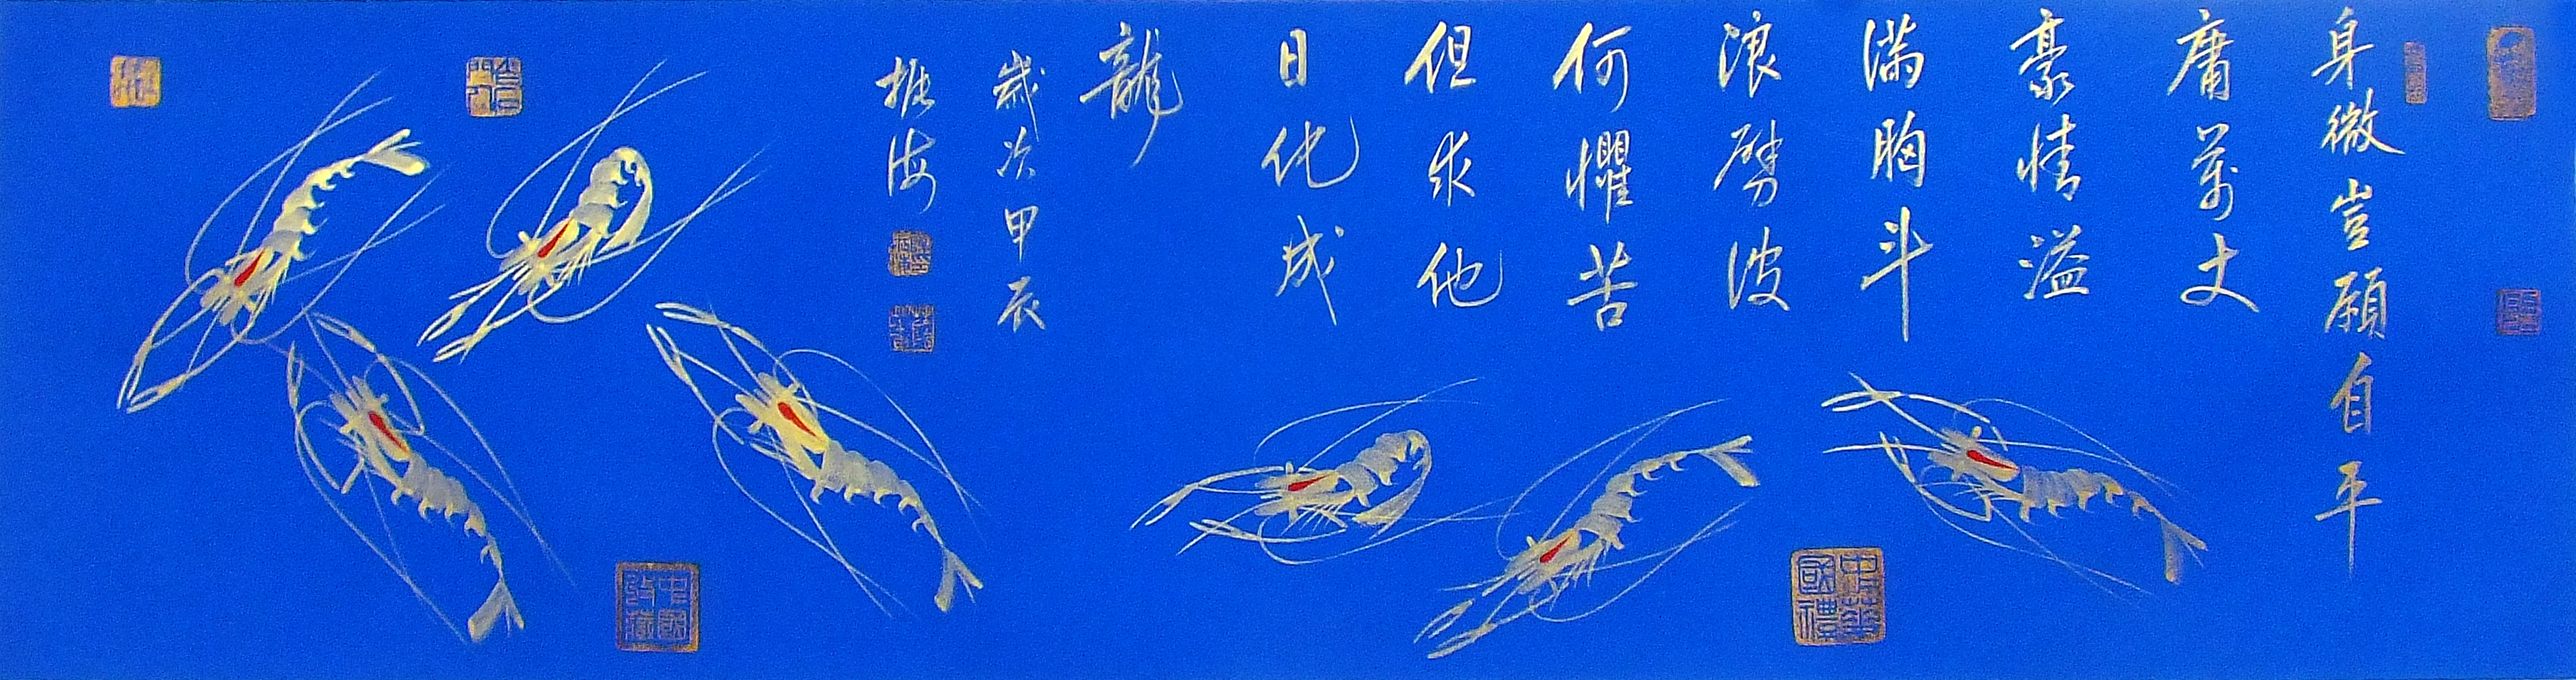 身微豈願自平
庸萬丈
豪情溢
滿胸斗
浪劈波
何懼苦
但求他
日化成
龍
歲次甲辰
振海
中華國禮
中國收藏